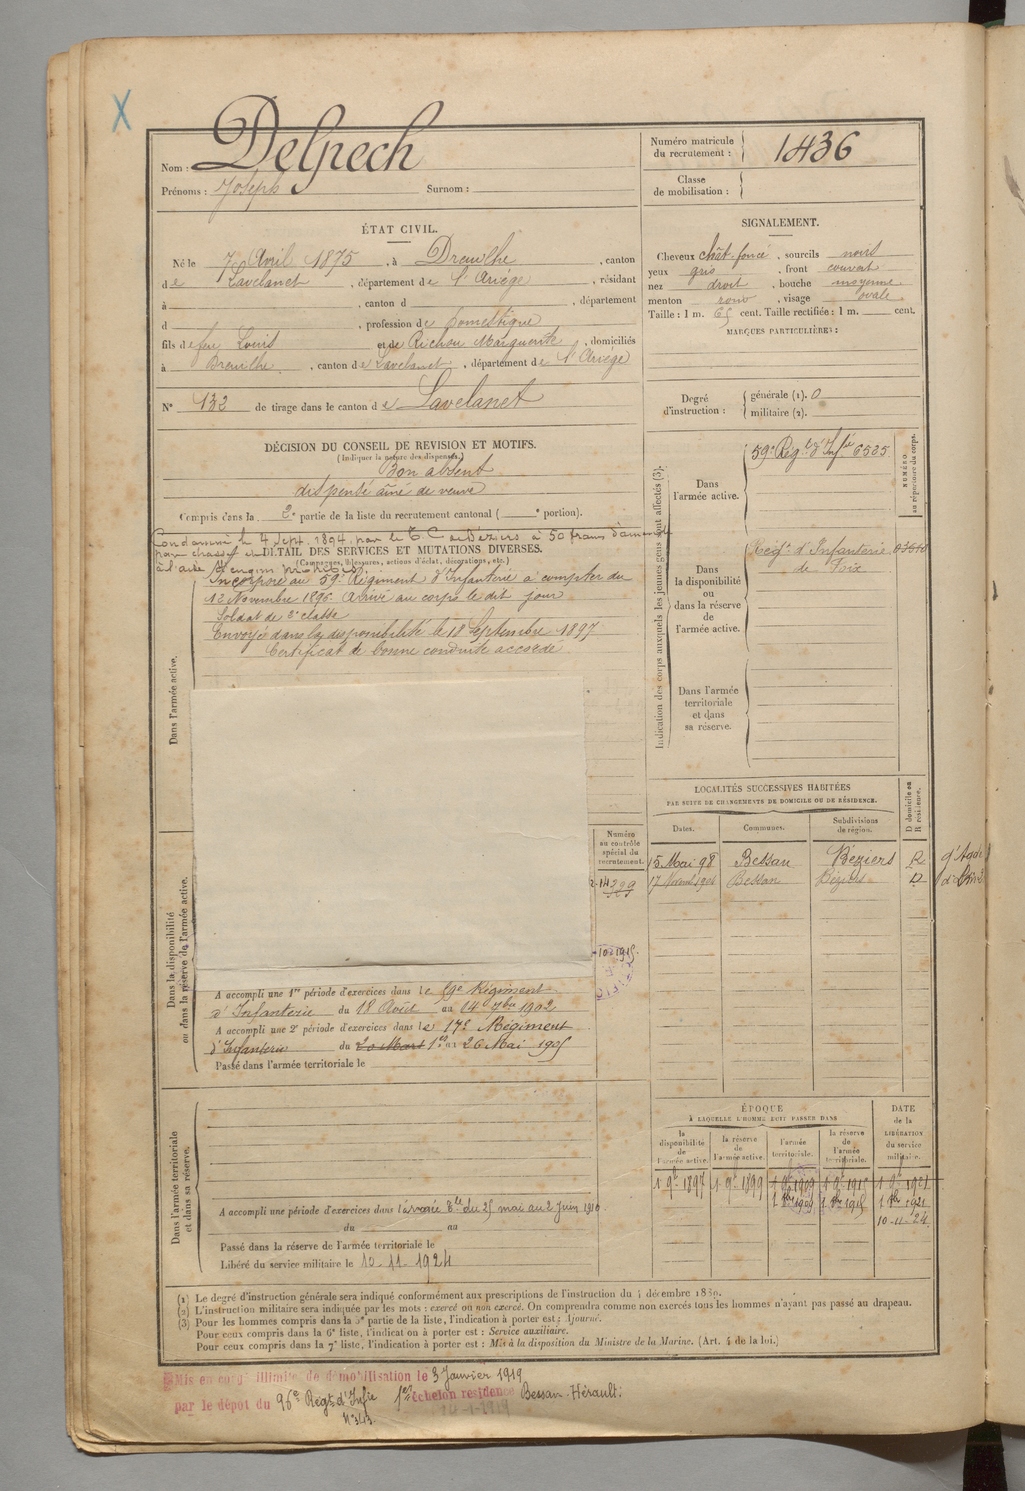 Nom : Delpech
Prénoms : Joseph Surnom :
Numéro matricule
du recrutement : 1436
Classe
de mobilisation :
ÉTAT CIVIL.
Né le 7 Avril 1875, à Dreuilhe, canton
de Lavelanet, département de l'Ariége, résidant
à , canton d , département
d , profession de Domestique
fils de feu Louis et de Richou Marguerite, domiciliés
à Dreuilhe, canton de Lavelanet, département de l'Ariége
N° 132 de tirage dans le canton de Lavelanet
SIGNALEMENT.
Cheveux chât-foncé, sourcils noirs
yeux gris, front couvert
nez droit, bouche moyenne
menton rond, visage ovale
Taille : 1 m. 65 cent. Taille rectifiée : 1 m. cent.
MARQUES PARTICULIÈRES :
Degré
d'instruction :
générale (1). 0
militaire (2).
DÉCISION DU CONSEIL DE REVISION ET MOTIFS.
(Indiquer la nature des dispenses.)
Bon absent
dispensé aîné de veuve
Compris dans la 2e partie de la liste du recrutement cantonal ( e portion).
Condamné le 4 Sept. 1894 par le T. C. de Béziers à 50 francs d'amende
pour chasse
à l'aide d'engins prohibés.
DÉTAIL DES SERVICES ET MUTATIONS DIVERSES.
(Campagnes, blessures, actions d'éclat, décorations, etc.)
Incorporé au 59e Régiment d'Infanterie à compter du
12 Novembre 1896. Arrivé au corps le dit jour
Soldat de 2e classe
Envoyé dans la disponibilité le 18 Septembre 1897
Certificat de bonne conduite accordé
Dans l'armée active.
Indication des corps auxquels les jeunes gens sont affectés (3).
NUMÉRO
au répertoire du corps.
Dans
l'armée active.
59e Régt d'Infie 6535
Dans
la disponibilité
ou
dans la réserve
de
l'armée active.
Régt d'Infanterie
de Foix
Dans l'armée
territoriale
et dans
sa réserve.
LOCALITÉS SUCCESSIVES HABITÉES
PAR SUITE DE CHANGEMENTS DE DOMICILE OU DE RÉSIDENCE.
Dates. Communes. Subdivisions
de région. D domicile ou
R résidence.
15 Mai 98 Bessan Béziers R
17 1901 Bessan Béziers D
Numéro
au contrôle
spécial du
recrutement.
Dans la disponibilité
ou dans la réserve de l'armée active.
A accompli une 1re période d'exercices dans le 59e Régiment
d'Infanterie du 18 Août au 14 7bre 1902
A accompli une 2e période d'exercices dans le 17e Régiment
d'Infanterie du 20 Mars 1er au 26 Mai 1905
Passé dans l'armée territoriale le
ÉPOQUE
À LAQUELLE L'HOMME DOIT PASSER DANS
la
disponibilité
de
l'armée active.
la réserve
de
l'armée active.
l'armée
territoriale.
la réserve
de
l'armée
territoriale.
DATE
de la
LIBÉRATION
du service
militaire.
1 9bre 1897 1 9bre 1899 1 9bre 1909 1 9bre 1915 1 9bre 1921
1 8bre 1909 1 8bre 1915 1 8bre 1921
10-11-24
Dans l'armée territoriale
et dans sa réserve.
A accompli une période d'exercices dans du 25 mai au 2 Juin 1910
du au
Passé dans la réserve de l'armée territoriale le
Libéré du service militaire le 10-11-1924
(1) Le degré d'instruction générale sera indiqué conformément aux prescriptions de l'instruction du 4 décembre 1889.
(2) L'instruction militaire sera indiquée par les mots : exercé ou non exercé. On comprendra comme non exercés tous les hommes n'ayant pas passé au drapeau.
(3) Pour les hommes compris dans la 5e partie de la liste, l'indication à porter est : Ajourné.
Pour ceux compris dans la 6e liste, l'indication à porter est : Service auxiliaire.
Pour ceux compris dans la 7e liste, l'indication à porter est : Mis à la disposition du Ministre de la Marine. (Art. 4 de la loi.)
Mis en congé illimité de démobilisation le 3 Janvier 1919
par le dépôt du 96e Régt d'Infie 1er échelon résidence Bessan-Hérault.
N° 343